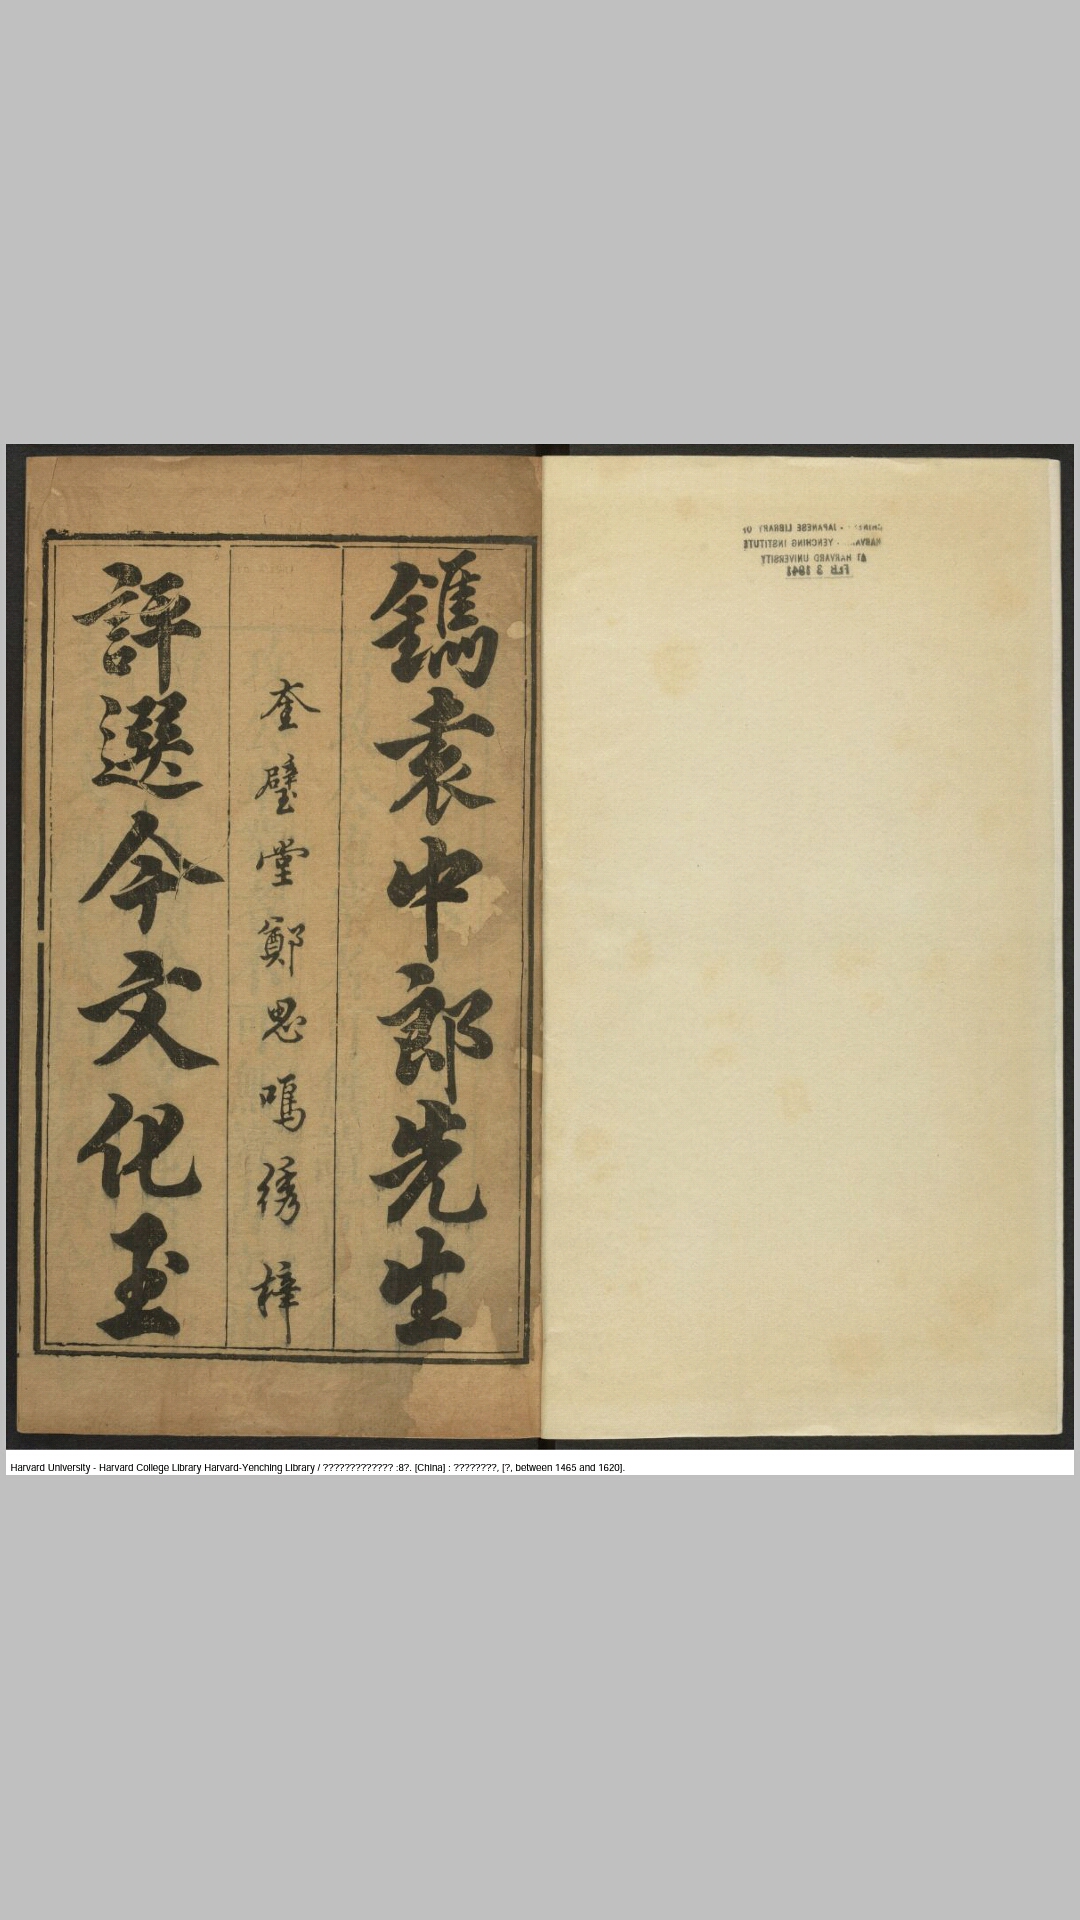 鐫袁中郎先生
奎璧堂鄭思鳴綉梓
評選今文化玉
JAPANESE LIBRARY OF
YENCHING INSTITUTE
AT HARVARD UNIVERSITY
FEB 3 1941
Harvard University - Harvard College Library Harvard-Yenching Library / ????????????? :8?. [China] : ????????, [?, between 1465 and 1620].